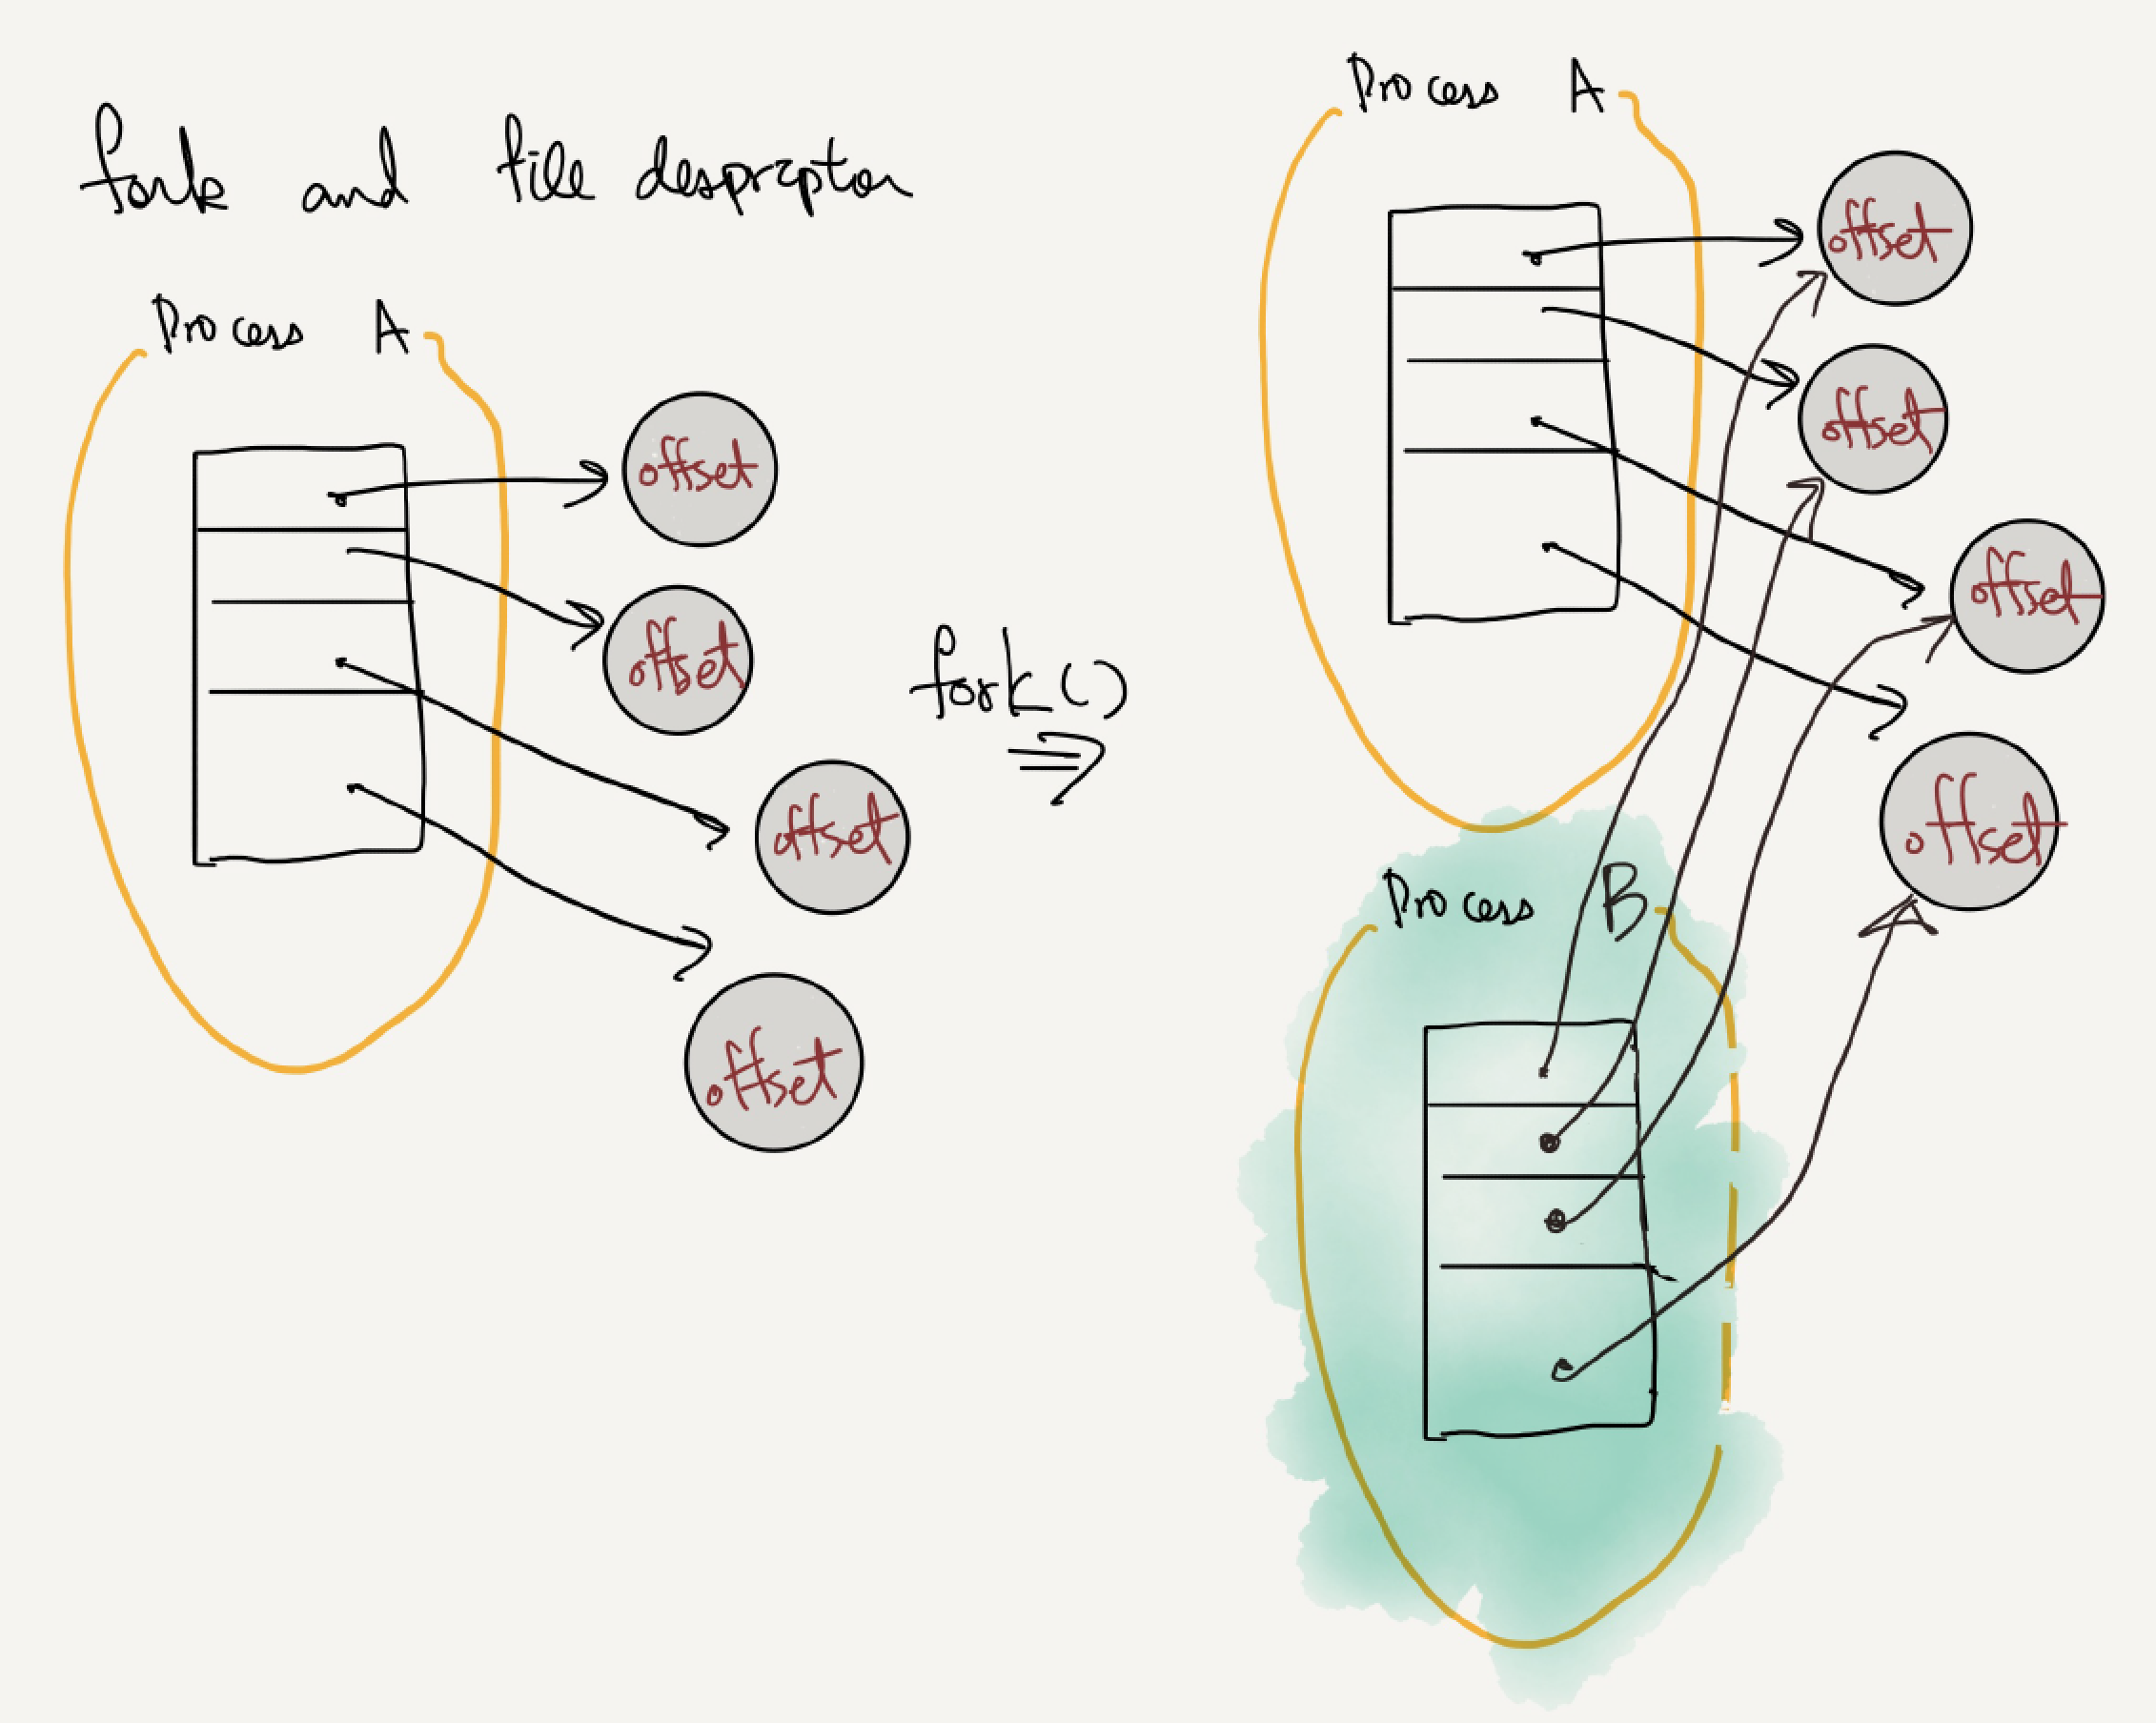 fork and file despriptor
Process A
offset
offset
offset
offset
fork()
Process A
offset
offset
offset
offset
Process B